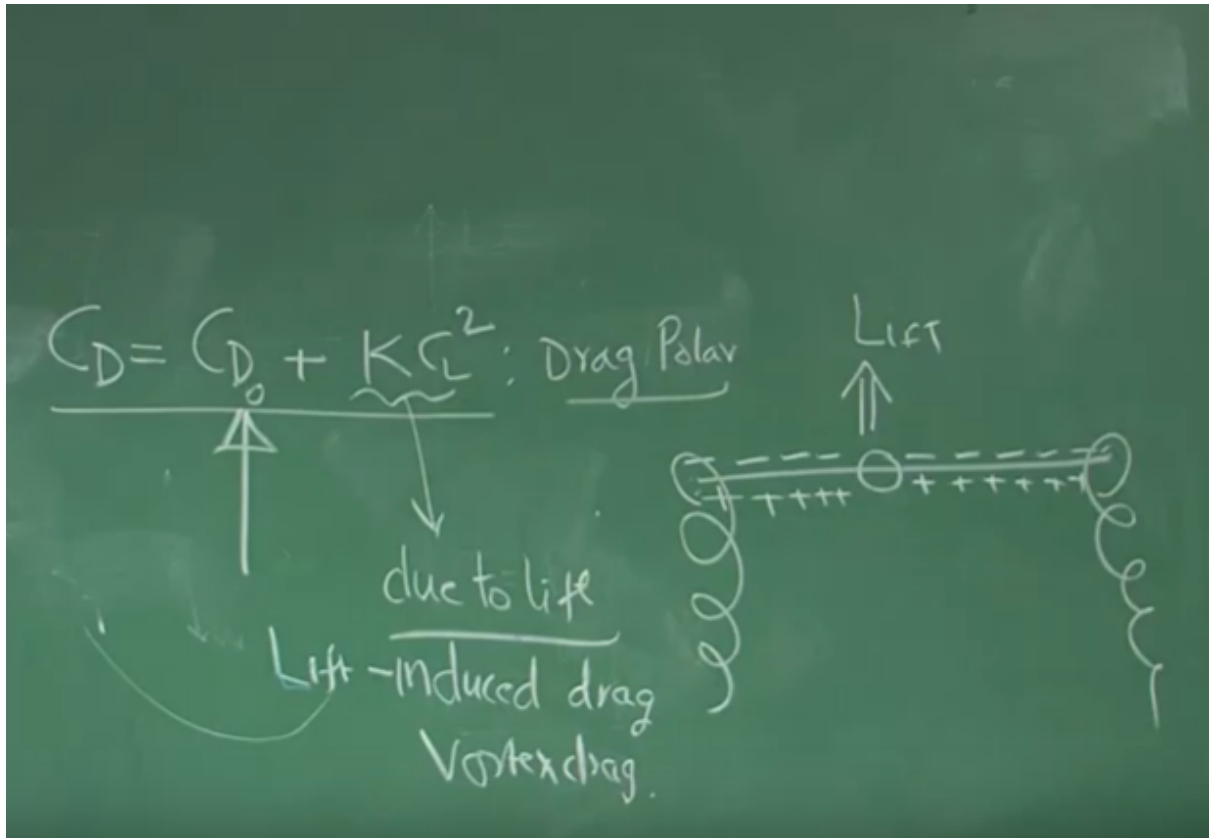 C_D = C_D₀ + K C_L² : Drag Polar
LIFT
- - - - - - - - -
+ + + + + + + + + + +
due to lift
Lift-induced drag
Vortex drag.